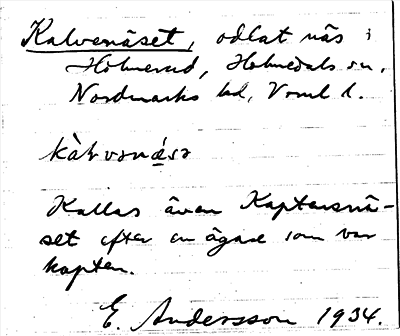 Kalvenäset, odlat näs i
Holmerud, Holmedals sn.
Nordmarks hd, Vrml l.
Kallas även Kaptensnä-
set efter en ägare som var
kapten.
E. Andersson 1934.